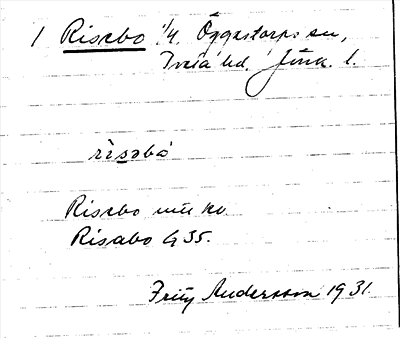 1 Risebo 1/4. Öggestorps sn,
Tveta hd. Jönk. l.
rìsəbò
Risebo
Risabo G 35.
Fritz Andersson 1931.